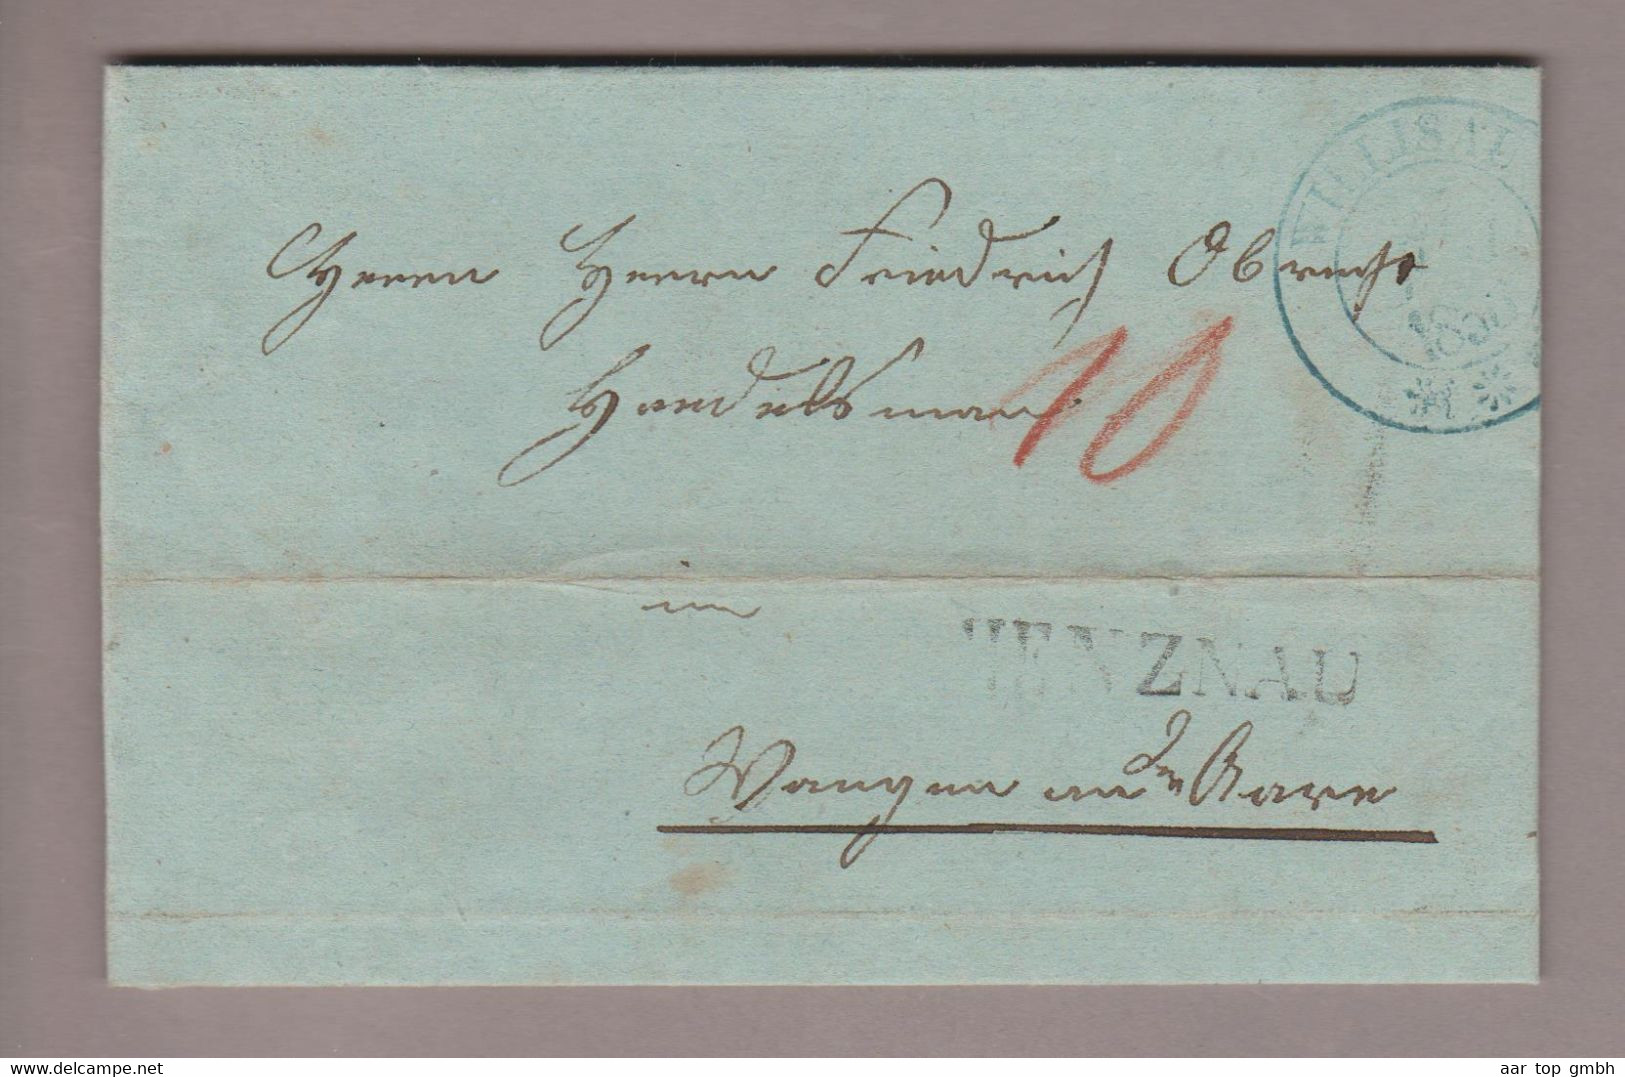 WILLISAU
185
Herren Herrn Friedrich Obrecht
Handelsmann
10
in
MENZNAU
Wangen an der Aare
www.delcampe.net
aar top gmbh